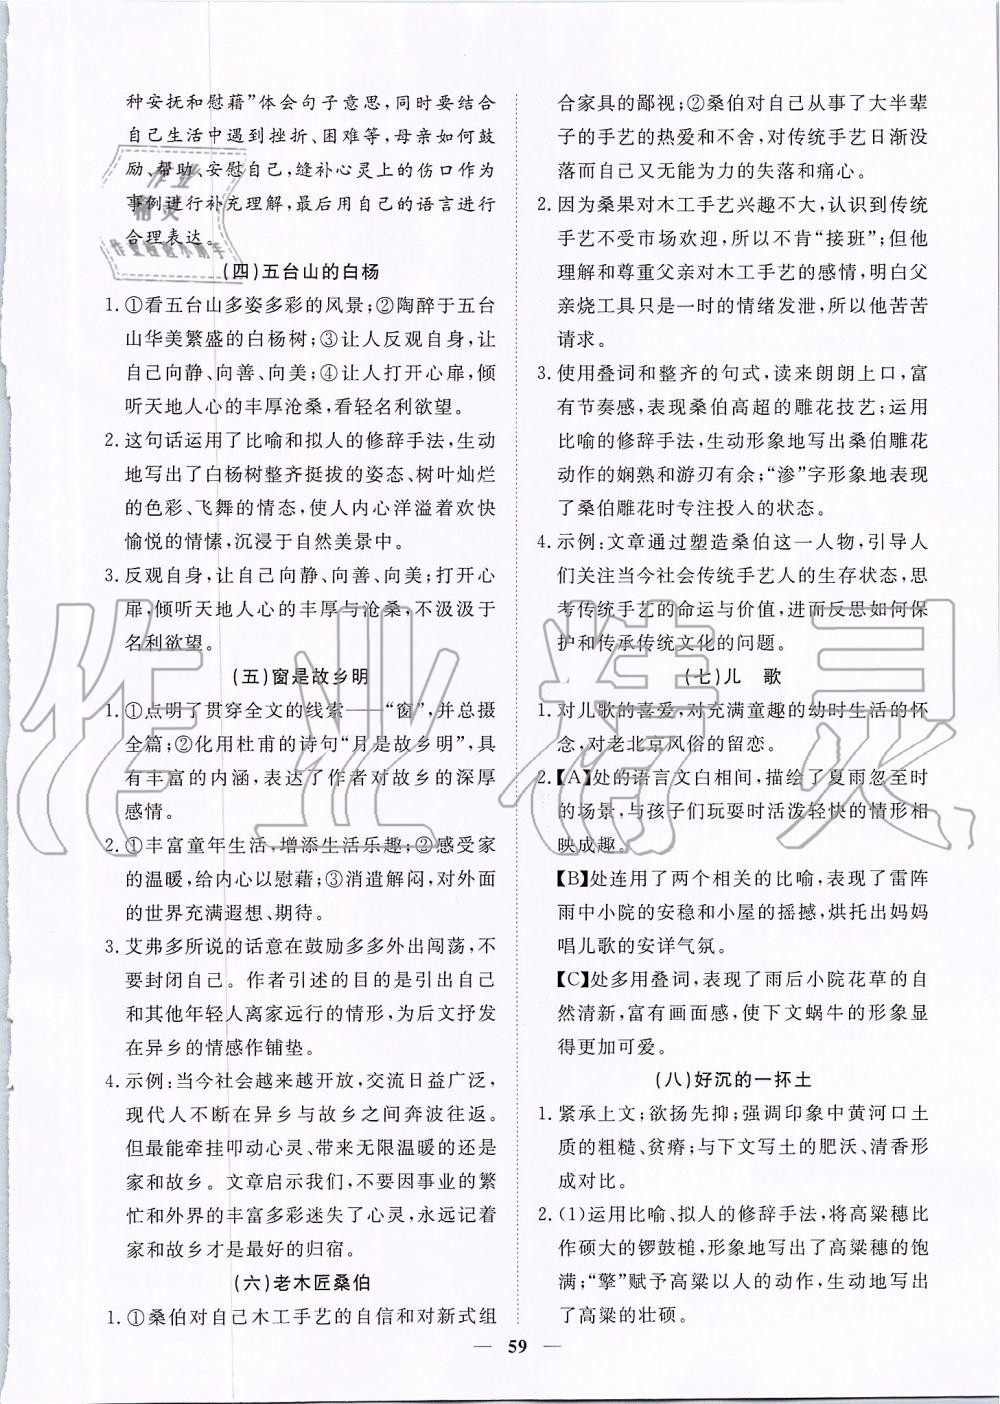 种安抚和慰藉”体会句子意思,同时要结合
自己生活中遇到挫折、困难等,母亲如何鼓
励、帮助、安慰自己,缝补心灵上的伤口作为
事例进行补充理解,最后用自己的语言进行
合理表达。
(四)五台山的白杨
1. ①看五台山多姿多彩的风景;②陶醉于五台
山华美繁盛的白杨树;③让人反观自身,让
自己向静、向善、向美;④让人打开心扉,倾
听天地人心的丰厚沧桑,看轻名利欲望。
2. 这句话运用了比喻和拟人的修辞手法,生动
地写出了白杨树整齐挺拔的姿态、树叶灿烂
的色彩、飞舞的情态,使人内心洋溢着欢快
愉悦的情愫,沉浸于自然美景中。
3. 反观自身,让自己向静、向善、向美;打开心
扉,倾听天地人心的丰厚与沧桑,不汲汲于
名利欲望。
(五)窗是故乡明
1. ①点明了贯穿全文的线索——“窗”,并总摄
全篇;②化用杜甫的诗句“月是故乡明”,具
有丰富的内涵,表达了作者对故乡的深厚
感情。
2. ①丰富童年生活,增添生活乐趣;②感受家
的温暖,给内心以慰藉;③消遣解闷,对外面
的世界充满遐想、期待。
3. 艾弗多所说的话意在鼓励多多外出闯荡,不
要封闭自己。作者引述的目的是引出自己
和其他年轻人离家远行的情形,为后文抒发
在异乡的情感作铺垫。
4. 示例:当今社会越来越开放,交流日益广泛,
现代人不断在异乡与故乡之间奔波往返。
但最能牵挂叩动心灵、带来无限温暖的还是
家和故乡。文章启示我们,不要因事业的繁
忙和外界的丰富多彩迷失了心灵,永远记着
家和故乡才是最好的归宿。
(六)老木匠桑伯
1. ①桑伯对自己木工手艺的自信和对新式组
合家具的鄙视;②桑伯对自己从事了大半辈
子的手艺的热爱和不舍,对传统手艺日渐没
落而自己又无能为力的失落和痛心。
2. 因为桑果对木工手艺兴趣不大,认识到传统
手艺不受市场欢迎,所以不肯“接班”;但他
理解和尊重父亲对木工手艺的感情,明白父
亲烧工具只是一时的情绪发泄,所以他苦苦
请求。
3. 使用叠词和整齐的句式,读来朗朗上口,富
有节奏感,表现桑伯高超的雕花技艺;运用
比喻的修辞手法,生动形象地写出桑伯雕花
动作的娴熟和游刃有余;“渗”字形象地表现
了桑伯雕花时专注投入的状态。
4. 示例:文章通过塑造桑伯这一人物,引导人
们关注当今社会传统手艺人的生存状态,思
考传统手艺的命运与价值,进而反思如何保
护和传承传统文化的问题。
(七)儿 歌
1. 对儿歌的喜爱,对充满童趣的幼时生活的怀
念,对老北京风俗的留恋。
2. 【A】处的语言文白相间,描绘了夏雨忽至时
的场景,与孩子们玩耍时活泼轻快的情形相
映成趣。
【B】处连用了两个相关的比喻,表现了雷阵
雨中小院的安稳和小屋的摇撼,烘托出妈妈
唱儿歌的安详气氛。
【C】处多用叠词,表现了雨后小院花草的自
然清新,富有画面感,使下文蜗牛的形象显
得更加可爱。
(八)好沉的一抔土
1. 紧承上文;欲扬先抑;强调印象中黄河口土
质的粗糙、贫瘠;与下文写土的肥沃、清香形
成对比。
2. (1)运用比喻、拟人的修辞手法,将高粱穗比
作硕大的锣鼓槌,形象地写出了高粱穗的饱
满;“擎”赋予高粱以人的动作,生动地写出
了高粱的壮硕。
— 59 —
作业精灵
作业
精灵
作业检查小帮手